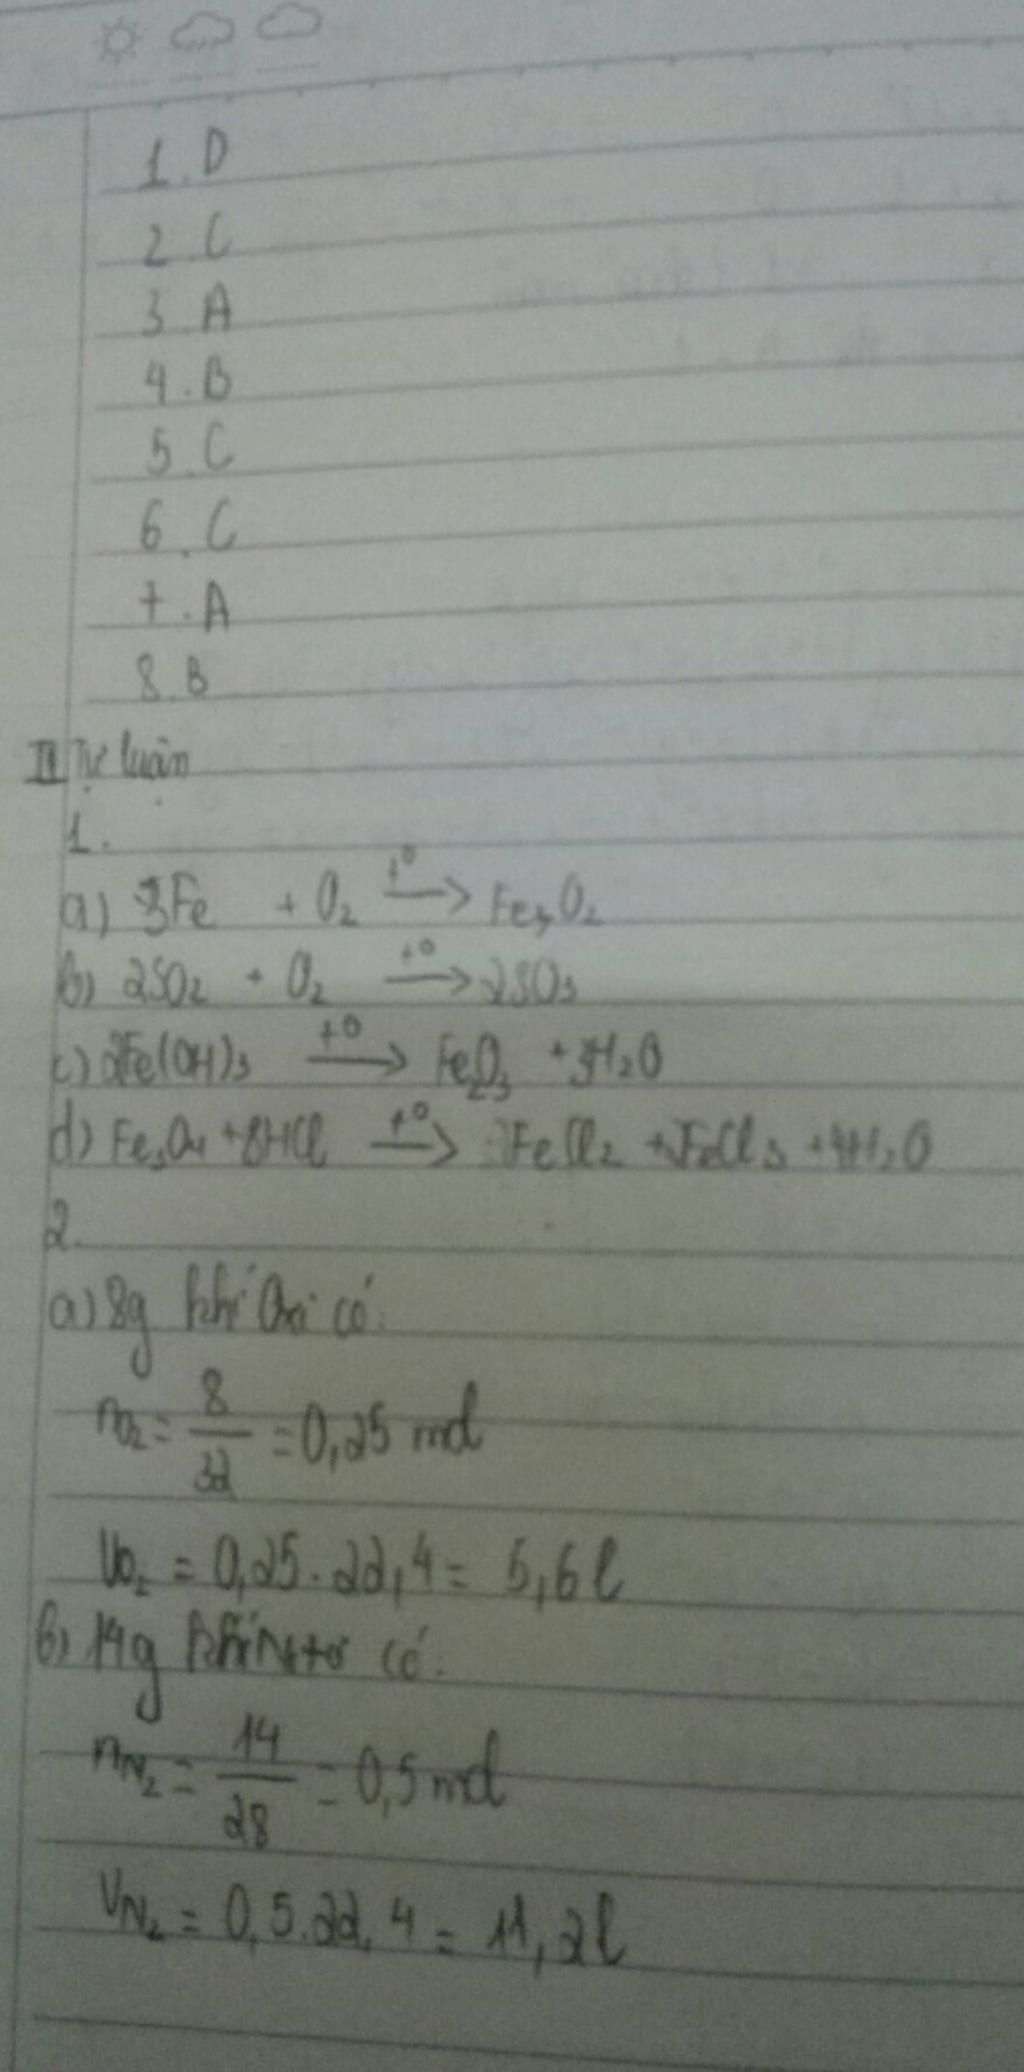 1. D
2. C
3. A
4. B
5. C
6. C
7. A
8. B
II Tự luận
1.
a) 3Fe + O₂ t° → Fe₃O₂
b) 2SO₂ + O₂ t° → 2SO₃
c) 2Fe(OH)₃ t° → Fe₂O₃ + 3H₂O
d) Fe₃O₄ + 8HCl t° → FeCl₂ + 2FeCl₃ + 4H₂O
2.
a) 8g khí Oxi có:
nO₂ = 8/32 = 0,25 mol
VO₂ = 0,25 . 22,4 = 5,6 l
b) 14g khí Nitơ có:
nN₂ = 14/28 = 0,5 mol
VN₂ = 0,5 . 22,4 = 11,2 l